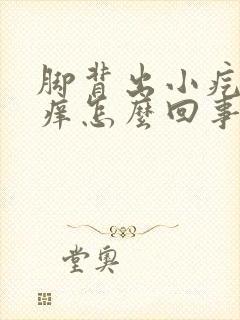 脚背出小疙
痒怎麼回事
堂奥